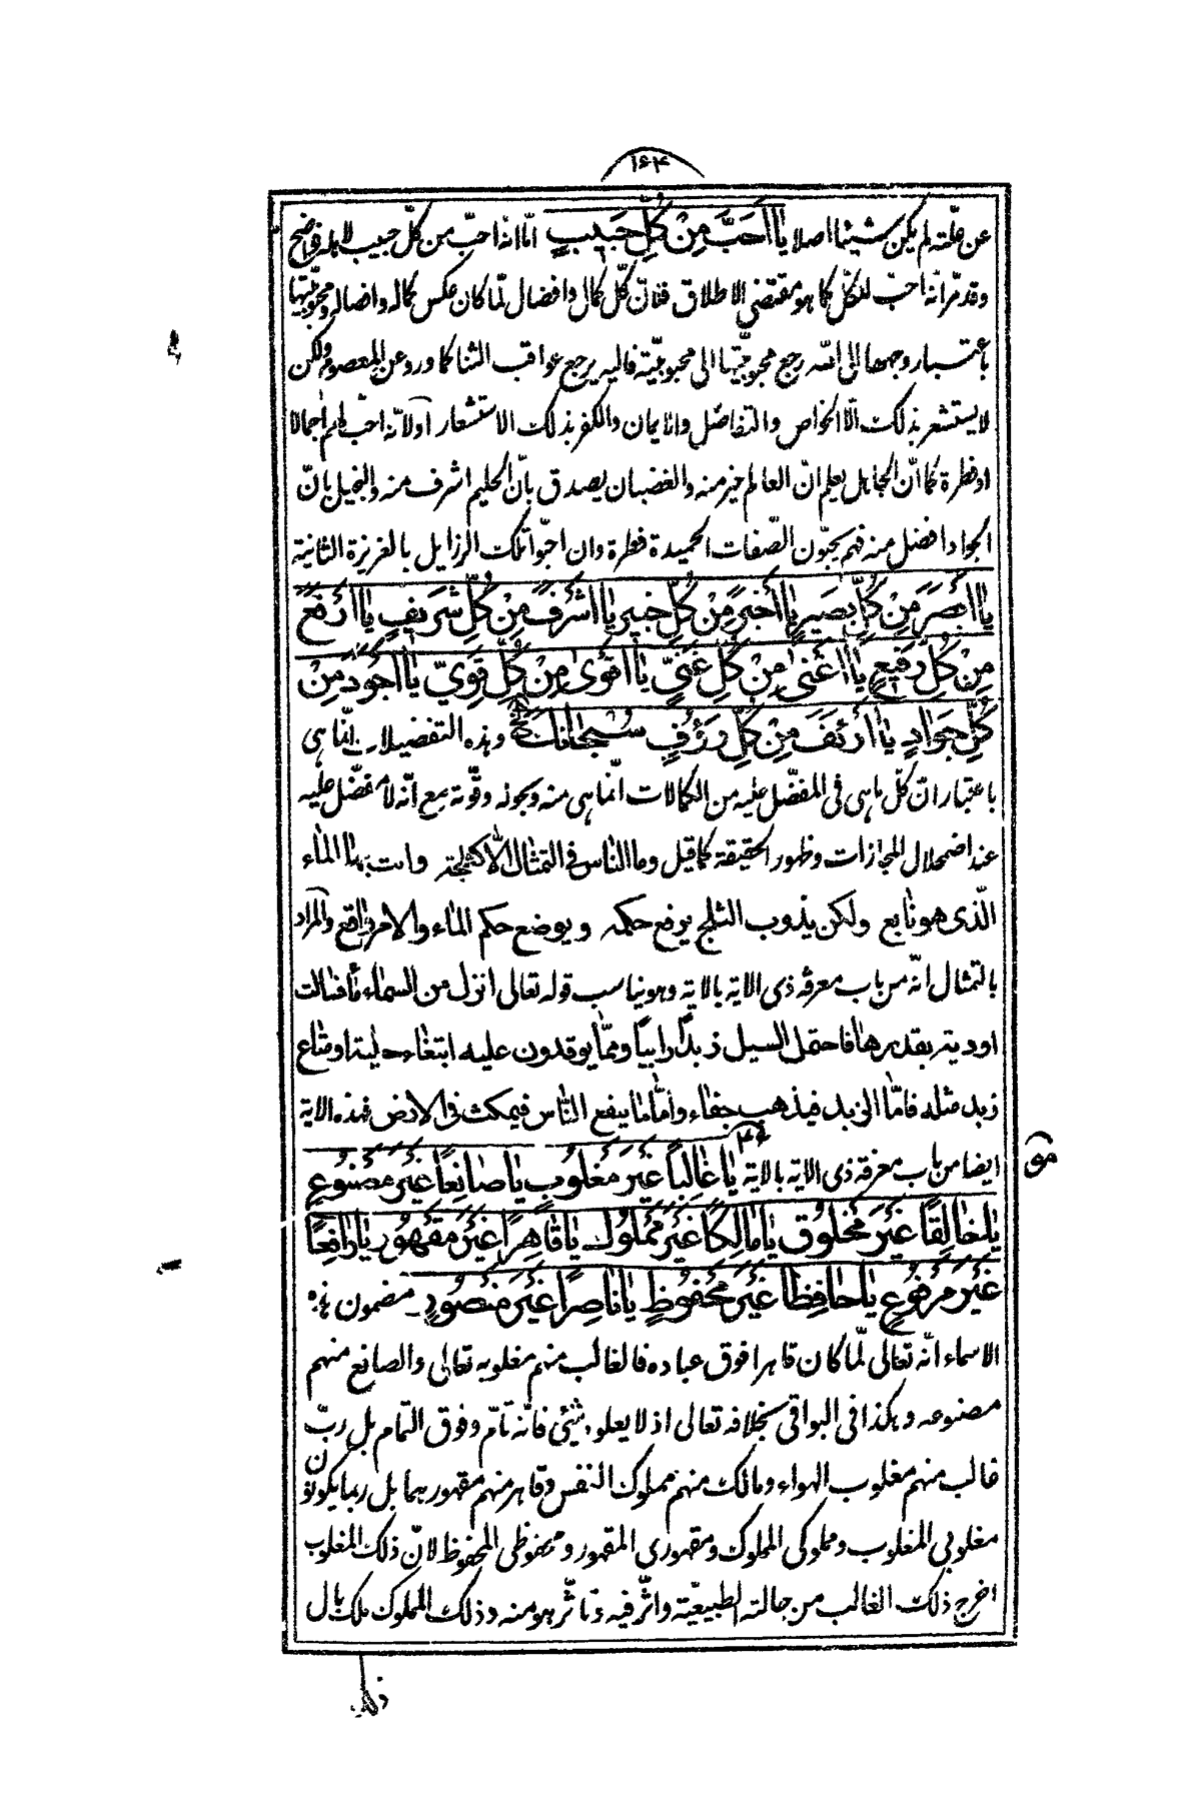 ۱۶۴
عن علّته لم يكن شيئا اصلا يا اَحَبَّ مِنْ كُلِّ حَبيبٍ امّا انه احبّ من كلّ حبيب لاهله فواضح
وقد مرّ انه احبّ للكلّ كما هو مقتضى الاطلاق فلانّ كلّ كمال وافضال لمّا كان عكس كماله وافضاله ومحبوبيّتها
باعتبار وجهها الى الله رجع محبوبيّتها الى محبوبيّته فاليه يرجع عواقب الثنا كما ورد عن المعصوم ولكن
لا يستشعر بذلك الّا الخواص والتفاضل والايمان والكفر بذلك الاستشعار اولا لانّه احبّ لهم اجمالا
او فطرة كما انّ الجاهل يعلم انّ العالم خير منه والغضبان يصدق بانّ الحليم اشرف منه والبخيل بانّ
الجواد افضل منه فهم يحبّون الصّفات الحميدة فطرة وان احبّوا تلك الرزايل بالغريزة الثانية
يا اَبْصَرَ مِنْ كُلِّ بَصيرٍ يا اَخْبَرَ مِنْ كُلِّ خَبيرٍ يا اَشْرَفَ مِنْ كُلِّ شَريفٍ يا اَرْفَعَ
مِنْ كُلِّ رَفيعٍ يا اَغْنى مِنْ كُلِّ غَنِيٍّ يا اَقْوى مِنْ كُلِّ قَوِيٍّ يا اَجْوَدَ مِنْ
كُلِّ جَوادٍ يا اَرْئَفَ مِنْ كُلِّ رَؤُفٍ سُبْحانَكَ الخ وهذه التفضيلات انّما هى
باعتبار انّ كلّ ما هى فى المفضّل عليه من الكمالات انّما هى منه وبحوله وقوّته مع انّه لا مفضّل عليه
عند اضمحلال المجازات وظهور الحقيقة كما قيل وما الناس فى التمثال الّا كثلجة وانت بها الماء
الّذى هو نابع ولكن يذوب الثلج يرفع حكمه ويوضع حكم الماء والامر واقع والمراد
بالتمثال انّه من باب معرفة ذى الاية بالاية وهو يناسب قوله تعالى انزل من السماء ماء فسالت
اودية بقدرها فاحتمل السيل زبدًا رابيًا وممّا يوقدون عليه ابتغاء حلية او متاع
زبد مثله فامّا الزبد فيذهب جفاء وامّا ما ينفع النّاس فيمكث فى الارض فهذه الاية
ايضا من باب معرفة ذى الاية بالاية يا غالِبًا غَيْرَ مَغْلُوبٍ يا صانِعًا غَيْرَ مَصْنُوعٍ
يا خالِقًا غَيْرَ مَخْلُوقٍ يا مالِكًا غَيْرَ مَمْلُوكٍ يا قاهِرًا غَيْرَ مَقْهُورٍ يا رافِعًا
غَيْرَ مَرْفُوعٍ يا حافِظًا غَيْرَ مَحْفُوظٍ يا ناصِرًا غَيْرَ مَنْصُورٍ مضمون هذه
الاسماء انّه تعالى لمّا كان قاهرا فوق عباده فالغالب منهم مغلوبه تعالى والصانع منهم
مصنوعه وهكذا فى البواقى بخلافه تعالى اذ لا يعلوه شئ فانّه تامّ وفوق التمام بل ربّ
غالب منهم مغلوب الهواء ومالك منهم مملوك النفس وقاهر منهم مقهور بهما بل ربما يكون
مغلوبى المغلوب ومملوكى المملوك ومقهورى المقهور ومحفوظى المحفوظ لانّ ذلك المغلوب
اخرج ذلك الغالب من حالته الطبيعيّة واثّر فيه وتأثّر هو منه وذلك المملوك ملك بال
ذلك